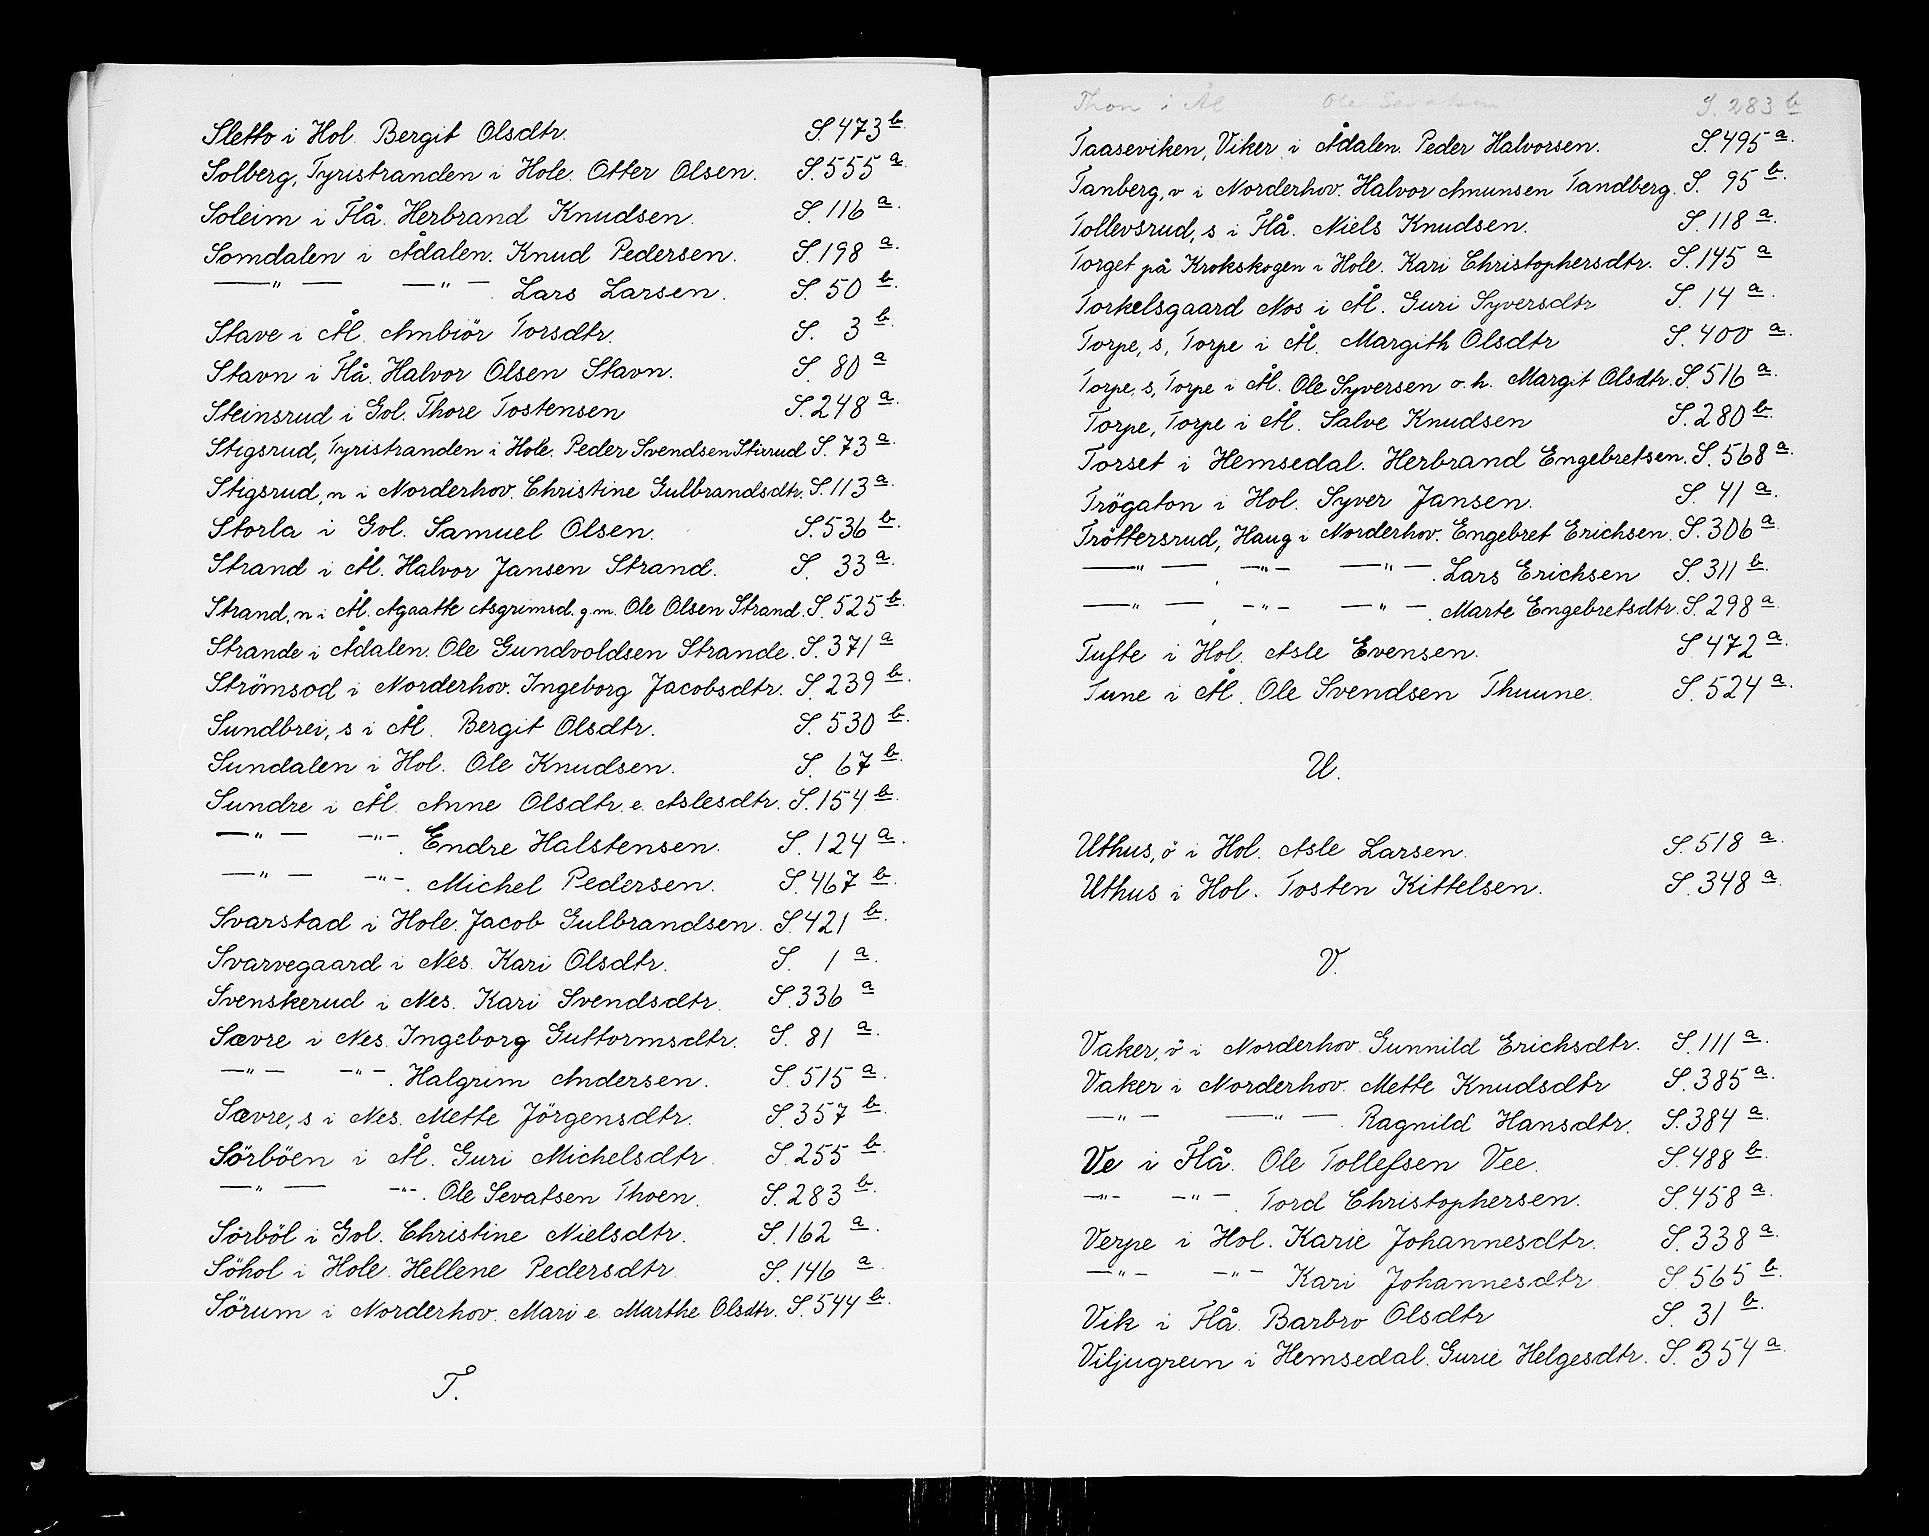 Sletto i Hol. Bergit Olsdtr. S. 473 b.
Solberg, Tyristranden i Hole. Otter Olsen. S. 555 a.
Soleim i Flå. Herbrand Knudsen. S. 116 a.
Somdalen i Ådalen. Knud Pedersen. S. 198 a.
—"— —"—. Lars Larsen. S. 50 b.
Stave i Ål. Ambiör Torsdtr. S. 3 b.
Stavn i Flå. Halvor Olsen Stavn. S. 80 a
Steinsrud i Gol. Thore Tostensen S. 248 a.
Stigsrud, Tyristranden i Hole. Peder Svendsen Stirrud S. 73 a.
Stigsrud, n i Norderhov. Christine Gulbrandsdtr. S. 113 a.
Storla i Gol. Samuel Olsen. S. 536 b.
Strand i Ål. Halvor Jansen Strand. S. 33 a.
Strand, n i Ål. Agaatte Asgrimsd. g.m. Ole Olsen Strand. S. 525 b.
Strande i Ådalen. Ole Gundvoldsen Strande. S. 371 a
Strömsod i Norderhov. Ingeborg Jacobsdtr. S. 239 b.
Sundbrei, s i Ål. Bergit Olsdtr. S. 530 b.
Sundalen i Hol. Ole Knudsen. S. 67 b.
Sundre i Ål. Anne Olsdtr. e. Aslesdtr. S. 154 b.
—"— —"—. Endre Halstensen. S. 124 a.
—"— —"—. Michel Pedersen. S. 467 b.
Svarstad i Hole. Jacob Gulbrandsen. S. 421 b.
Svarvegaard i Nes. Kari Olsdtr. S. 1 a.
Svenskerud i Nes. Kari Svendsdtr. S. 336 a
Sævre i Nes. Ingeborg Guttormsdtr. S. 81 a.
—"— —"—. Halgrim Andersen. S. 515 a.
Sævre, s i Nes. Mette Jörgensdtr. S. 357 b.
Sörböen i Ål. Guri Michelsdtr. S. 255 b.
—"— —"—. Ole Sevatsen Thoen. S. 283 b.
Sörböl i Gol. Christine Nielsdtr. S. 162 a.
Söhol i Hole. Hellene Pedersdtr. S. 146 a.
Sörum i Norderhov. Mari e. Marthe Olsdtr. S. 544 b.
T.
Thon i Ål Ole Sevatsen S. 283 b
Taaseviken, Viker i Ådalen. Peder Halvorsen. S. 495 a.
Tanberg, v i Norderhov. Halvor Amunsen Tandberg. S. 95 b.
Tollevsrud, s i Flå. Niels Knudsen. S. 118 a.
Torget på Krokskogen i Hole. Kari Christophersdtr. S. 145 a
Torkelsgaard Nos i Ål. Guri Syversdtr S. 14 a.
Torpe, s, Torpe i Ål. Margith Olsdtr S. 400 a.
Torpe, s, Torpe i Ål. Ole Syversen o.h. Margit Olsdtr. S. 516 a.
Torpe, Torpe i Ål. Salve Knudsen S. 280 b.
Torset i Hemsedal. Herbrand Engebretsen. S. 568 a.
Trögaton i Hol. Syver Jansen. S. 41 a.
Tröttersrud, Haug i Norderhov. Engebret Erichsen. S. 306 a
—"—, —"— —"—. Lars Erichsen S. 311 b.
—"—, —"— —"—. Marte Engebretsdtr. S. 298 a.
Tufte i Hol. Asle Evensen. S. 472 a.
Tune i Ål. Ole Svendsen Thuune. S. 524 a.
U.
Uthus, ö i Hol. Asle Larsen. S. 518 a.
Uthus i Hol. Tosten Kittelsen. S. 348 a.
V.
Vaker, ö i Norderhov. Gunnild Erichsdtr. S. 111 a.
Vaker i Norderhov. Mette Knudsdtr S. 385 a.
—"— —"—. Ragnild Hansdtr. S. 384 a.
Ve i Flå. Ole Tollefsen Vee. S. 488 b.
—"— —"—. Tord Christophersen. S. 458 a.
Verpe i Hol. Karie Johannesdtr. S. 338 a.
—"— —"— Kari Johannesdtr. S. 565 b.
Vik i Flå. Barbro Olsdtr S. 31 b.
Viljugrein i Hemsedal. Gurie Helgesdtr. S. 354 a.